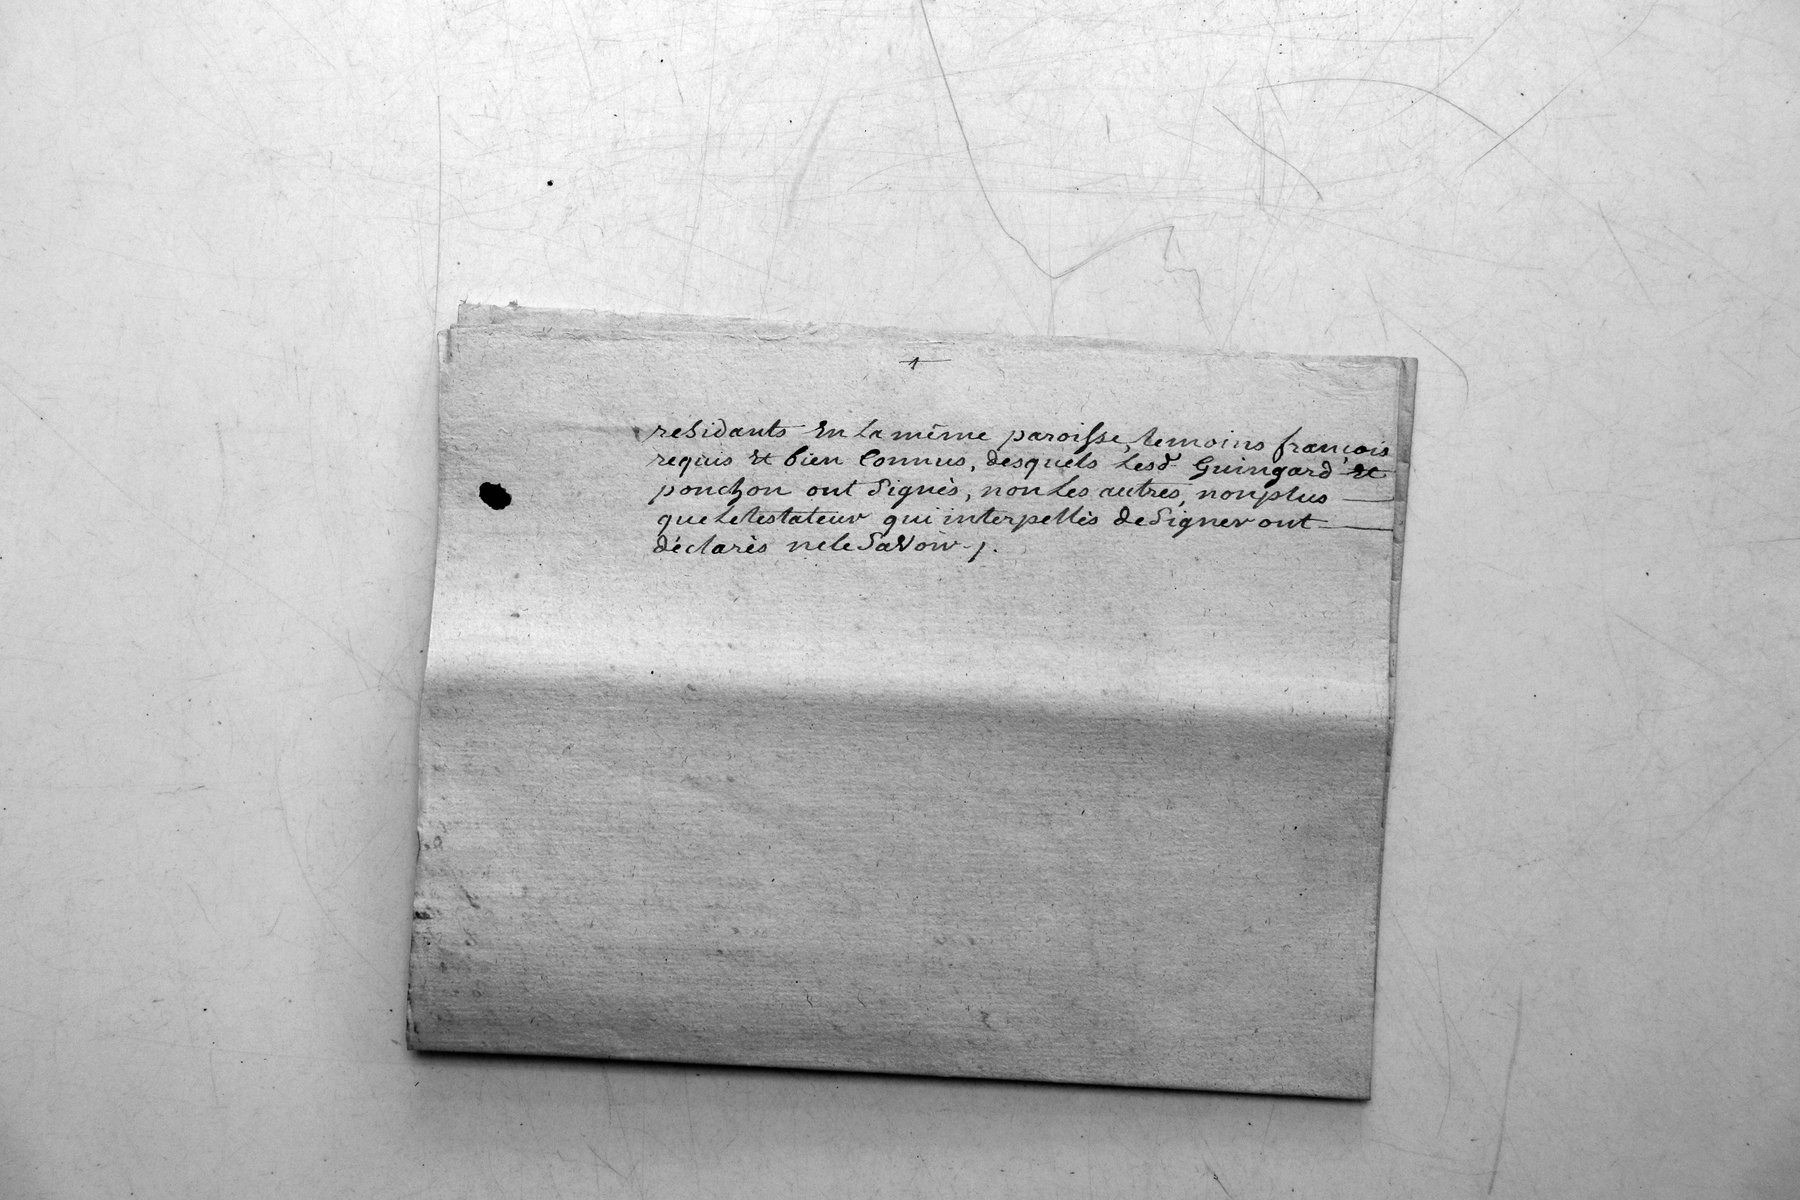 residants En la même paroisse, temoins françois
requis et bien Connus, desquels lesd. Guingard et
ponchon ont Signès, non les autres, non plus
que le testateur qui interpellès de Signer ont
déclarès ne le Savoir ./.